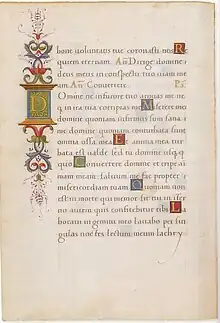 bone voluntatis tue coronasti nos. R
equiem eternam. Añ Dirige domine
deus meus in conspectu tuo uiam me
am. Añ Conuertere. Ps.
Domine ne in furore tuo arguas me: ne
q in ira tua corripias me. Miserere mei
domine quoniam infirmus sum sana
me domine quoniam conturbata sunt
omnia ossa mea. Et anima mea tur
bata est ualde sed tu domine usq
quo Conuertere domine et eripe ani
mam meam: saluum me fac propter
misericordiam tuam. Quoniam non
est in morte qui memor sit tui in infer
no autem quis confitebitur tibi. La
boraui in gemitu meo lauabo per sin
gulas noctes lectum meum lachry